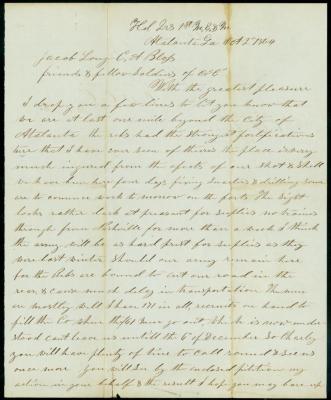 Hd Qrs 1st M. E. & M
Atalanta Ga Oct 2d 1864
Jacob Long C. A Bloss
friends & fellow Soldiers of Co E
With the greatest pleasure
I drop you a few lines to let you know that
we are at last one mile beyond the City of
Atalanta the rebs had the strongest fortifications
here that I have ever seen of theirs the place is very
much ingured from the efects of our Shot & Shell
we have been here four days fixing quarters & drilling some
are to commence work to morrow on the forts The Sight
looks rather dark at present for suplies no trains
through from Nashville for more than a week I think
the army will be as hard prest for suplies as they
were last winter Should our army remain here
for the Rebs are bound to cut our road in the
rear & cause much delay in transportation The men
are mostly well I have 171 in all, recruits on hand to
fill the Co when the 61 men go out, which is now under
stood cant leave us untill the 6 of December So thereby
you will have plenty of time to call round & see us
once more You will See by the enclosed petition my
action in your behalf & the result I hope you may bear up